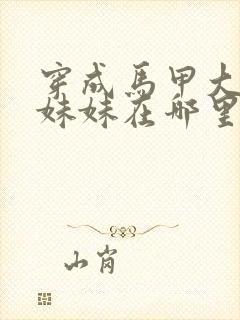 穿成馬甲大
妹妹在哪里
山肖